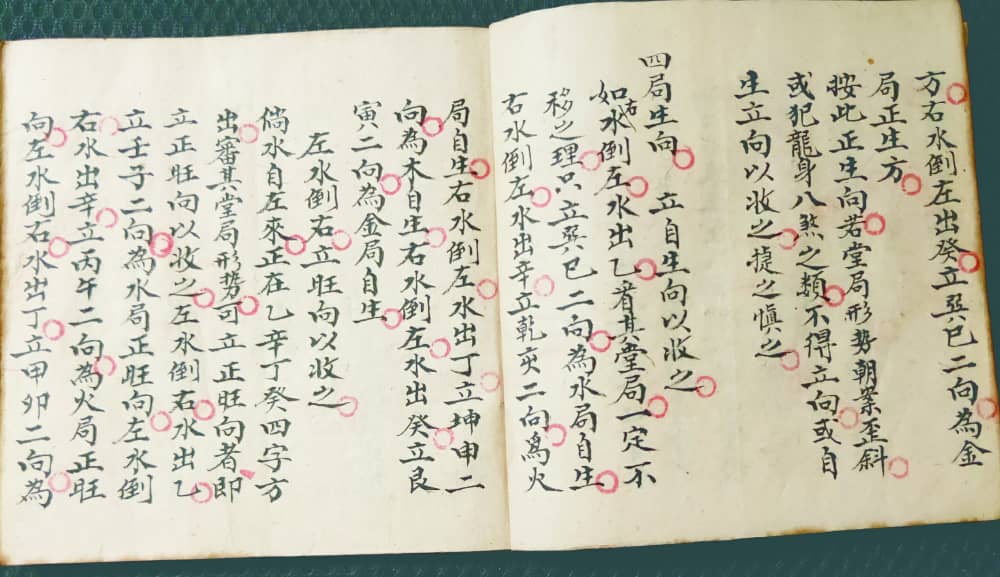 方右水倒左出癸立巽巳二向為金
局正生方
按此正生向若堂局形勢朝案歪斜
或犯龍身八煞之類不得立向或自
生立向以收之捷之慎之
四局生向　立自生向以收之
如右水倒左水出乙者其堂局一定不
移之理只立巽巳二向為水局自生
右水倒左水出辛立乾亥二向為火
局自生右水倒左水出丁立坤申二
向為木自生右水倒左水出癸立艮
寅二向為金局自生
左水倒右立旺向以收之
倘水自左來正在乙辛丁癸四字方
出審其堂局形勢可立正旺向者即
立正旺向以收之左水倒右水出乙
立壬子二向為水局正旺向左水倒
右水出辛立丙午二向為火局正旺
向左水倒右水出丁立甲卯二向為